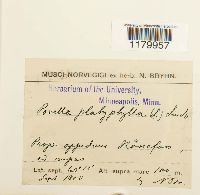 1179957
MUSCI NORVEGICI ex herb. N. BRYHN.
Herbarium of the University,
Minneapolis, Minn.
Porella platyphylla (L.) Lindb
Prope oppidum Hönefos,
ad rupes
Lat. sept.
Alt. supra mare 100 m.
Sept.